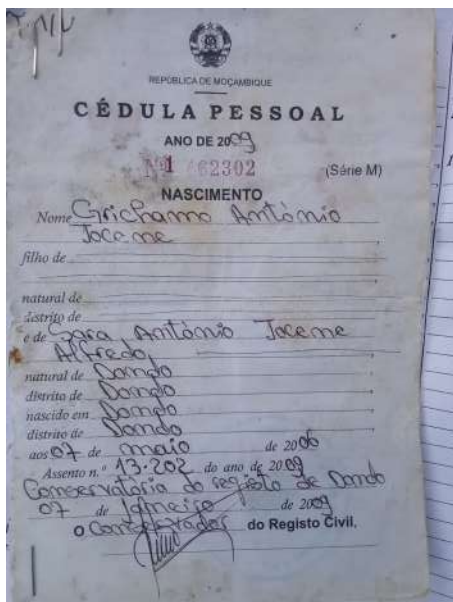 REPÚBLICA DE MOÇAMBIQUE
CÉDULA PESSOAL
ANO DE 2009
Nº 1 462302 (Série M)
NASCIMENTO
Nome Grichamo António
Joceme
filho de
natural de
distrito de
e de Sara António Joceme
Alfredo
natural de Dondo
distrito de Dondo
nascido em Dondo
distrito de Dondo
aos 07 de maio de 2006
Assento n.º 13.202 do ano de 2009
Conservatória do registo de Dondo
07 de Janeiro de 2009
o Conservador do Registo Civil,